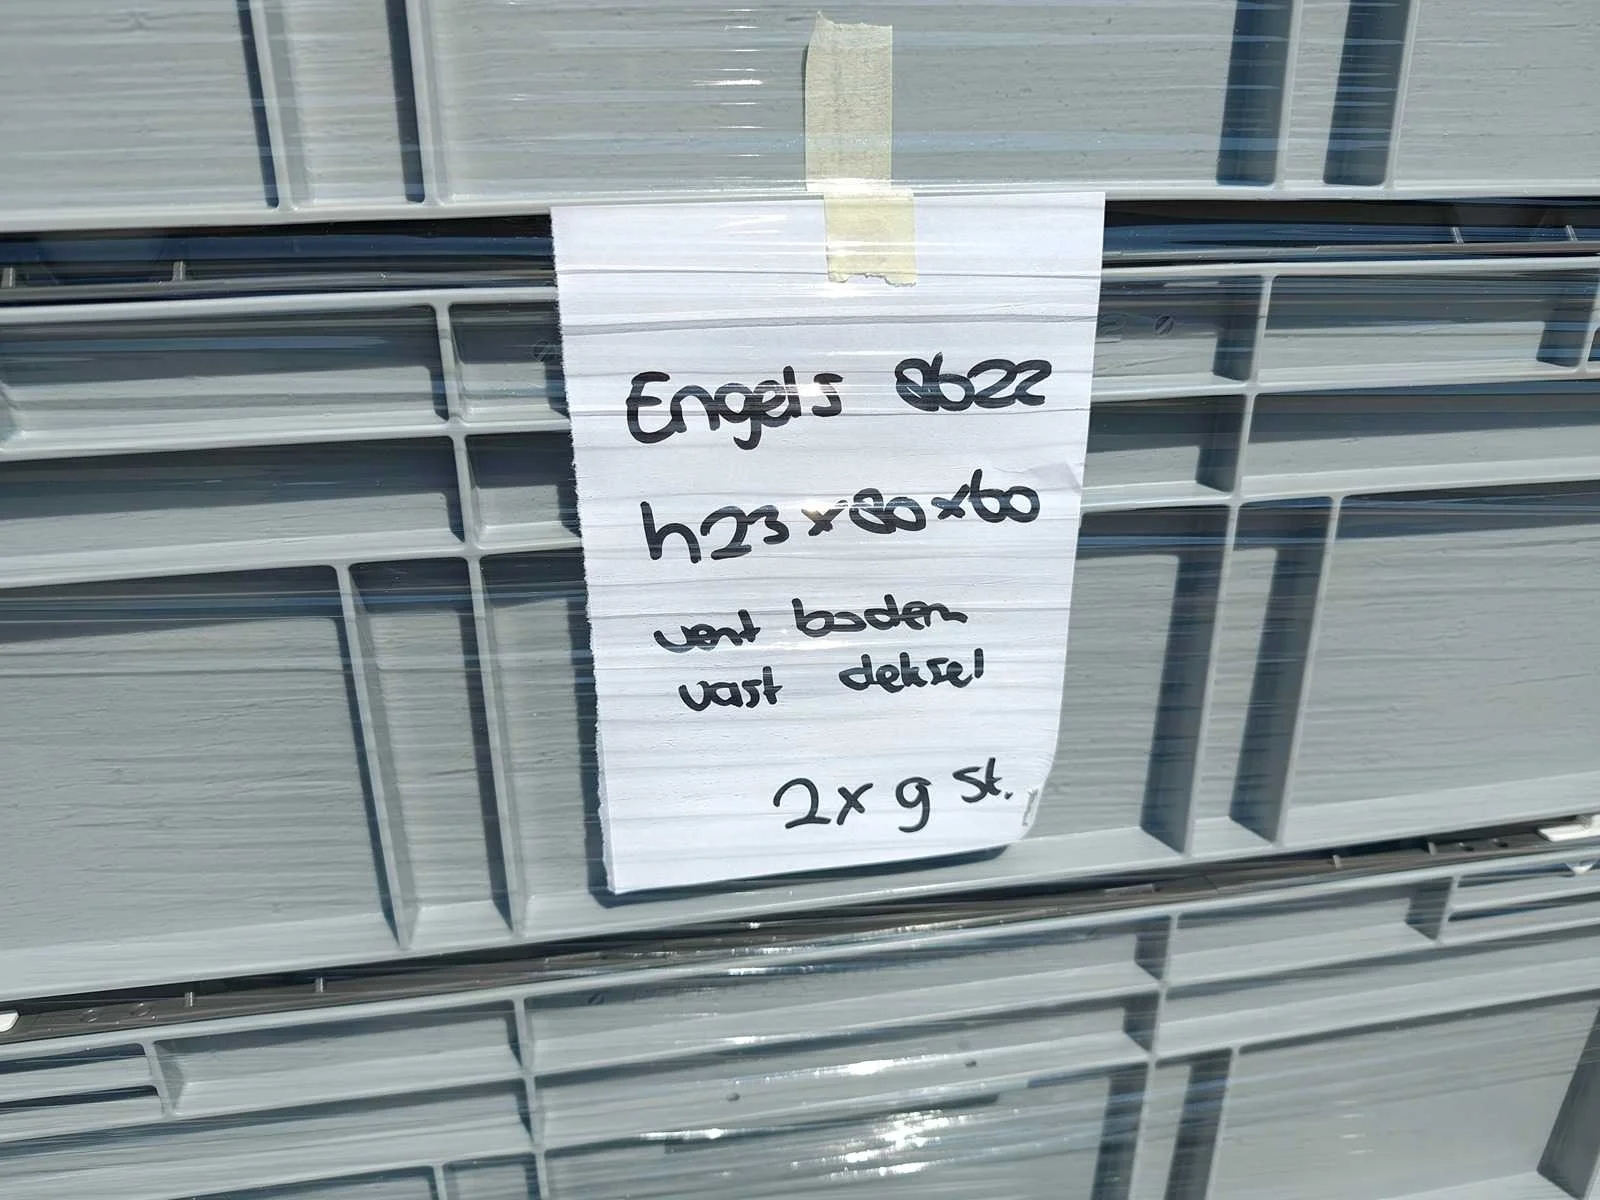 Engels 8622
h23x80x60
vent bodem
vast deksel
2x9 st.